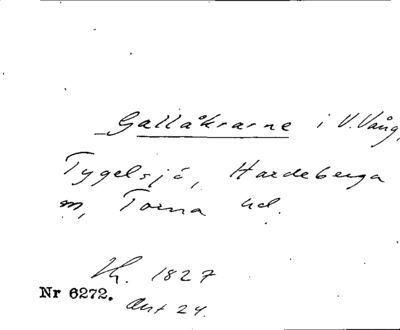 Gallåkrarne i V. Vång,
Tygelsjö, Hardeberga
m, Torna hd.
Lh. 1827
Nr 6272.
Akt 24.